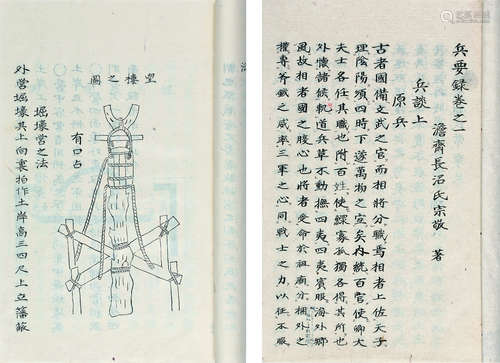 兵要録巻之一
澹齊長沼氏宗敬 著
兵談上
原兵
古者國備文武之官而相將分職焉相者上佐天子
理陰陽順四時下遂萬物之宜矣内統百官使卿大
夫士各任其職也附百姓使鰥寡孤獨各得其所也
外懷諸侯軌道兵革不動撫四夷四夷賓服海外鄉
風故相者國之腹心也將者受命於祖廟分梱外之
權專斧鉞之威率三軍之心同戰士之力以征不服
望樓之圖
有口占
堀壕營之法
外營堀壕其上向裏拍作土岸高三四尺上立藩籬